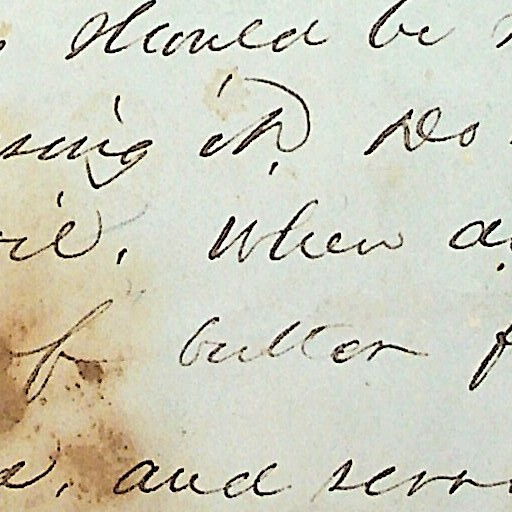 should be
sing it. Do
oil. When a
of butter f
a, and serv